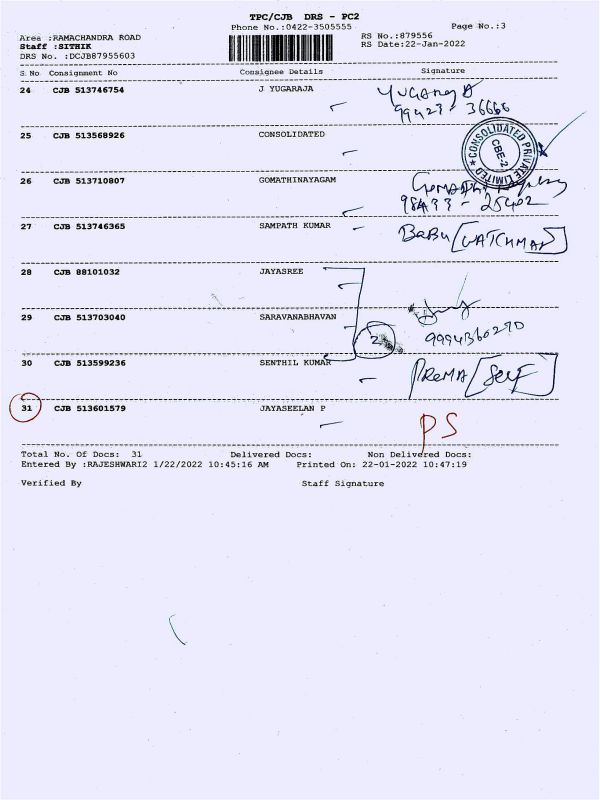 TPC/CJB DRS - PC2
Phone No.:0422-3505555
Page No.:3
Area :RAMACHANDRA ROAD
RS No.:879556
Staff :SITHIK
RS Date:22-Jan-2022
DRS No. :DCJB87955603
S.No Consignment No Consignee Details Signature
24 CJB 513746754 J YUGARAJA
99423 - 36666
25 CJB 513568926 CONSOLIDATED
CONSOLIDATED PRIVATE LIMITED
CBE-2
26 CJB 513710807 GOMATHINAYAGAM
98433 - 25402
27 CJB 513746365 SAMPATH KUMAR BABU [WATCHMAN]
28 CJB 88101032 JAYASREE
29 CJB 513703040 SARAVANABHAVAN
2
9994360290
30 CJB 513599236 SENTHIL KUMAR PREMA [SELF]
31 CJB 513601579 JAYASEELAN P PS
Total No. Of Docs: 31 Delivered Docs: Non Delivered Docs:
Entered By :RAJESHWARI2 1/22/2022 10:45:16 AM Printed On: 22-01-2022 10:47:19
Verified By Staff Signature